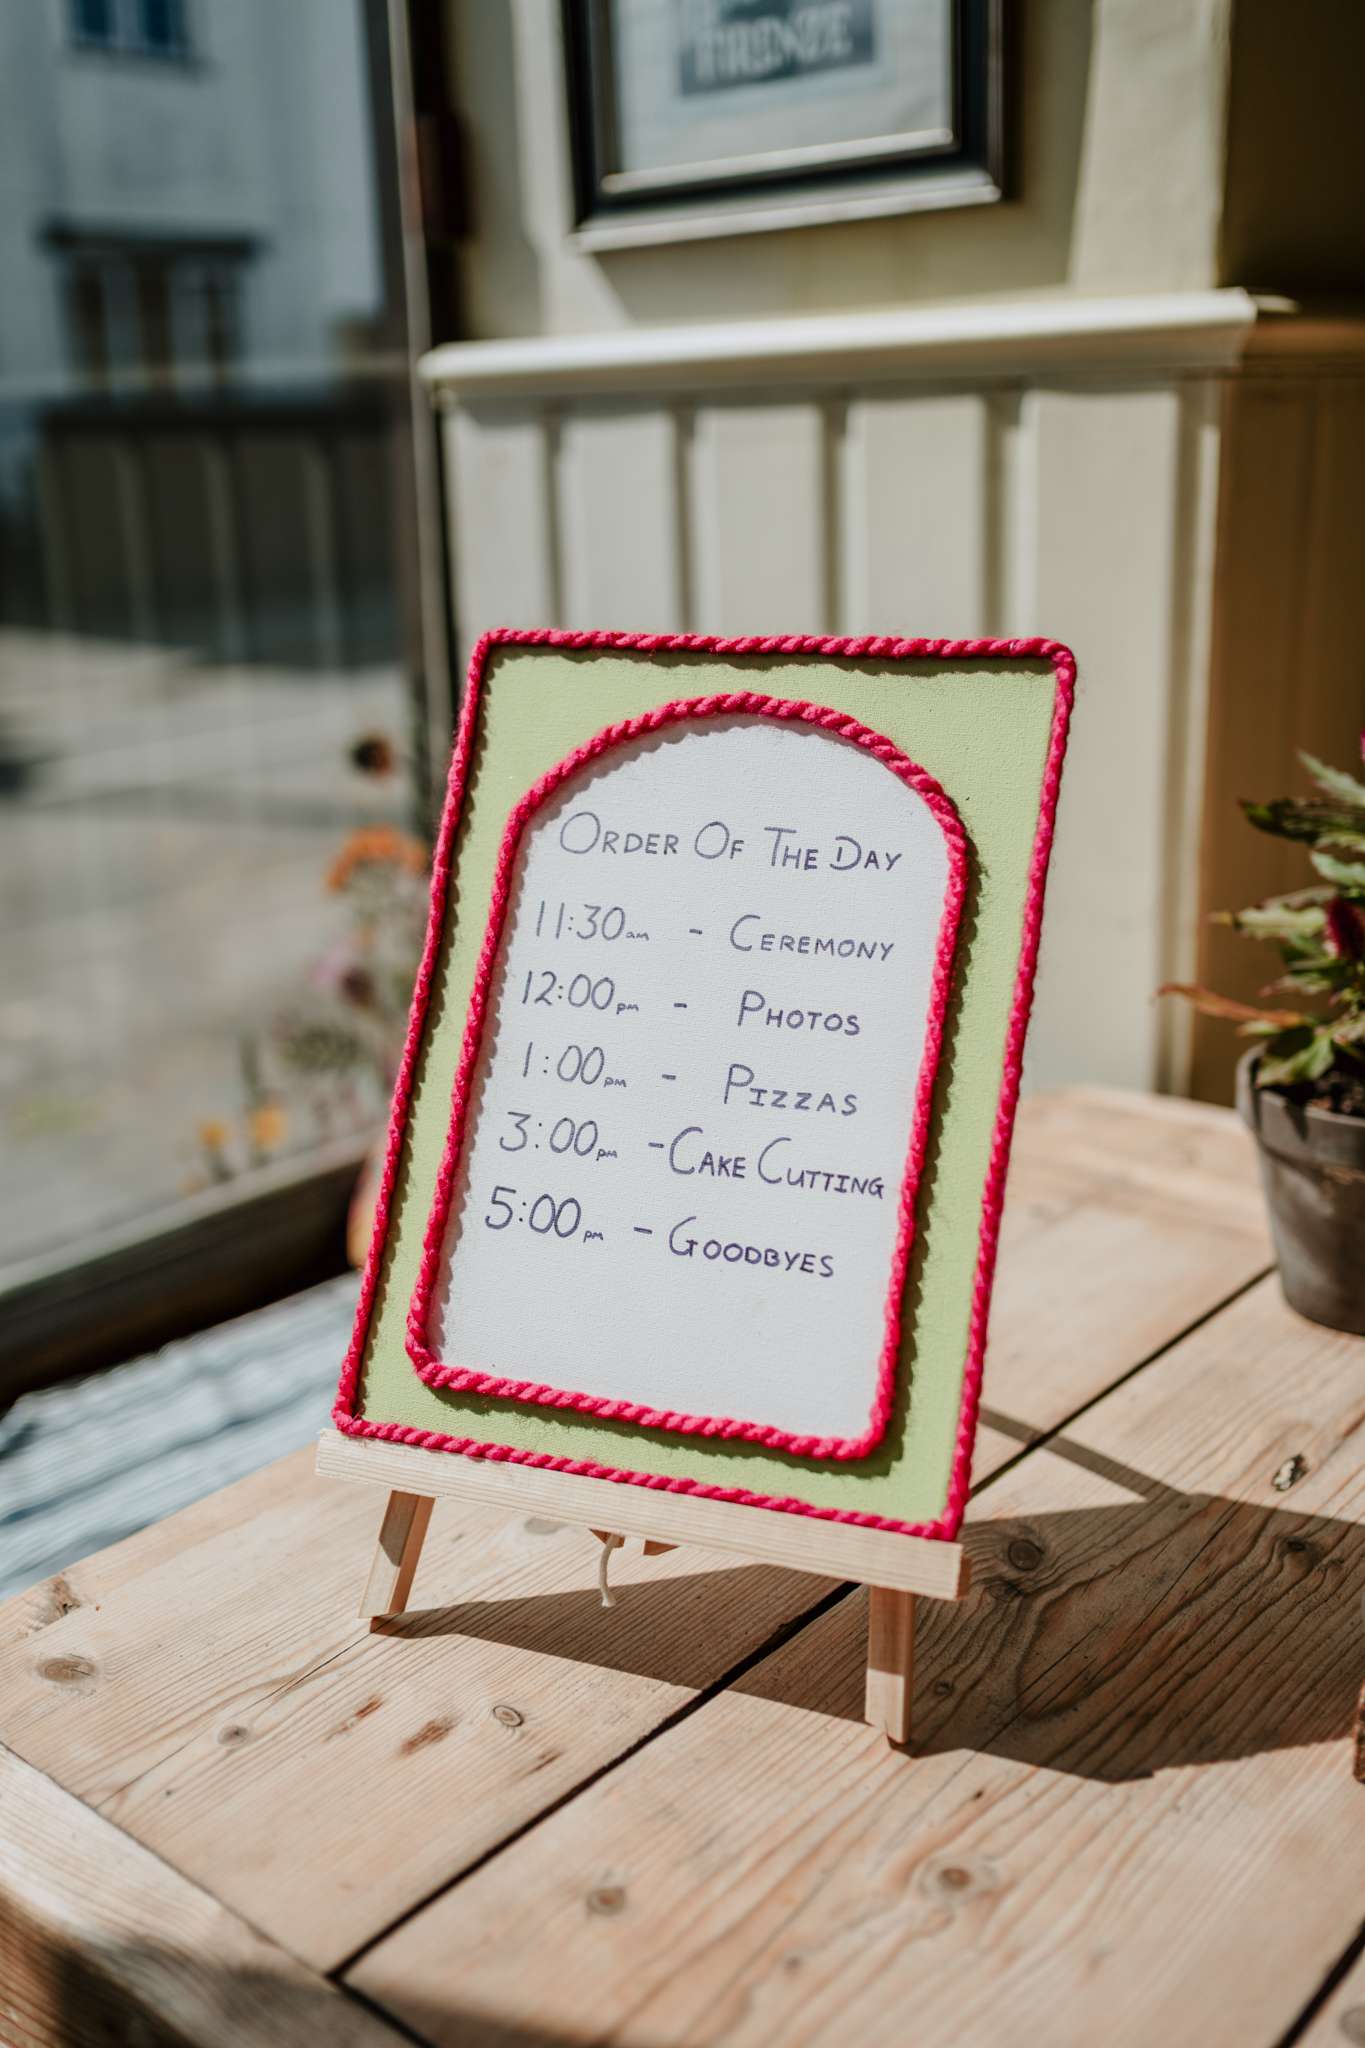 FIRENZE
ORDER OF THE DAY
11:30am - CEREMONY
12:00pm - PHOTOS
1:00pm - PIZZAS
3:00pm - CAKE CUTTING
5:00pm - GOODBYES